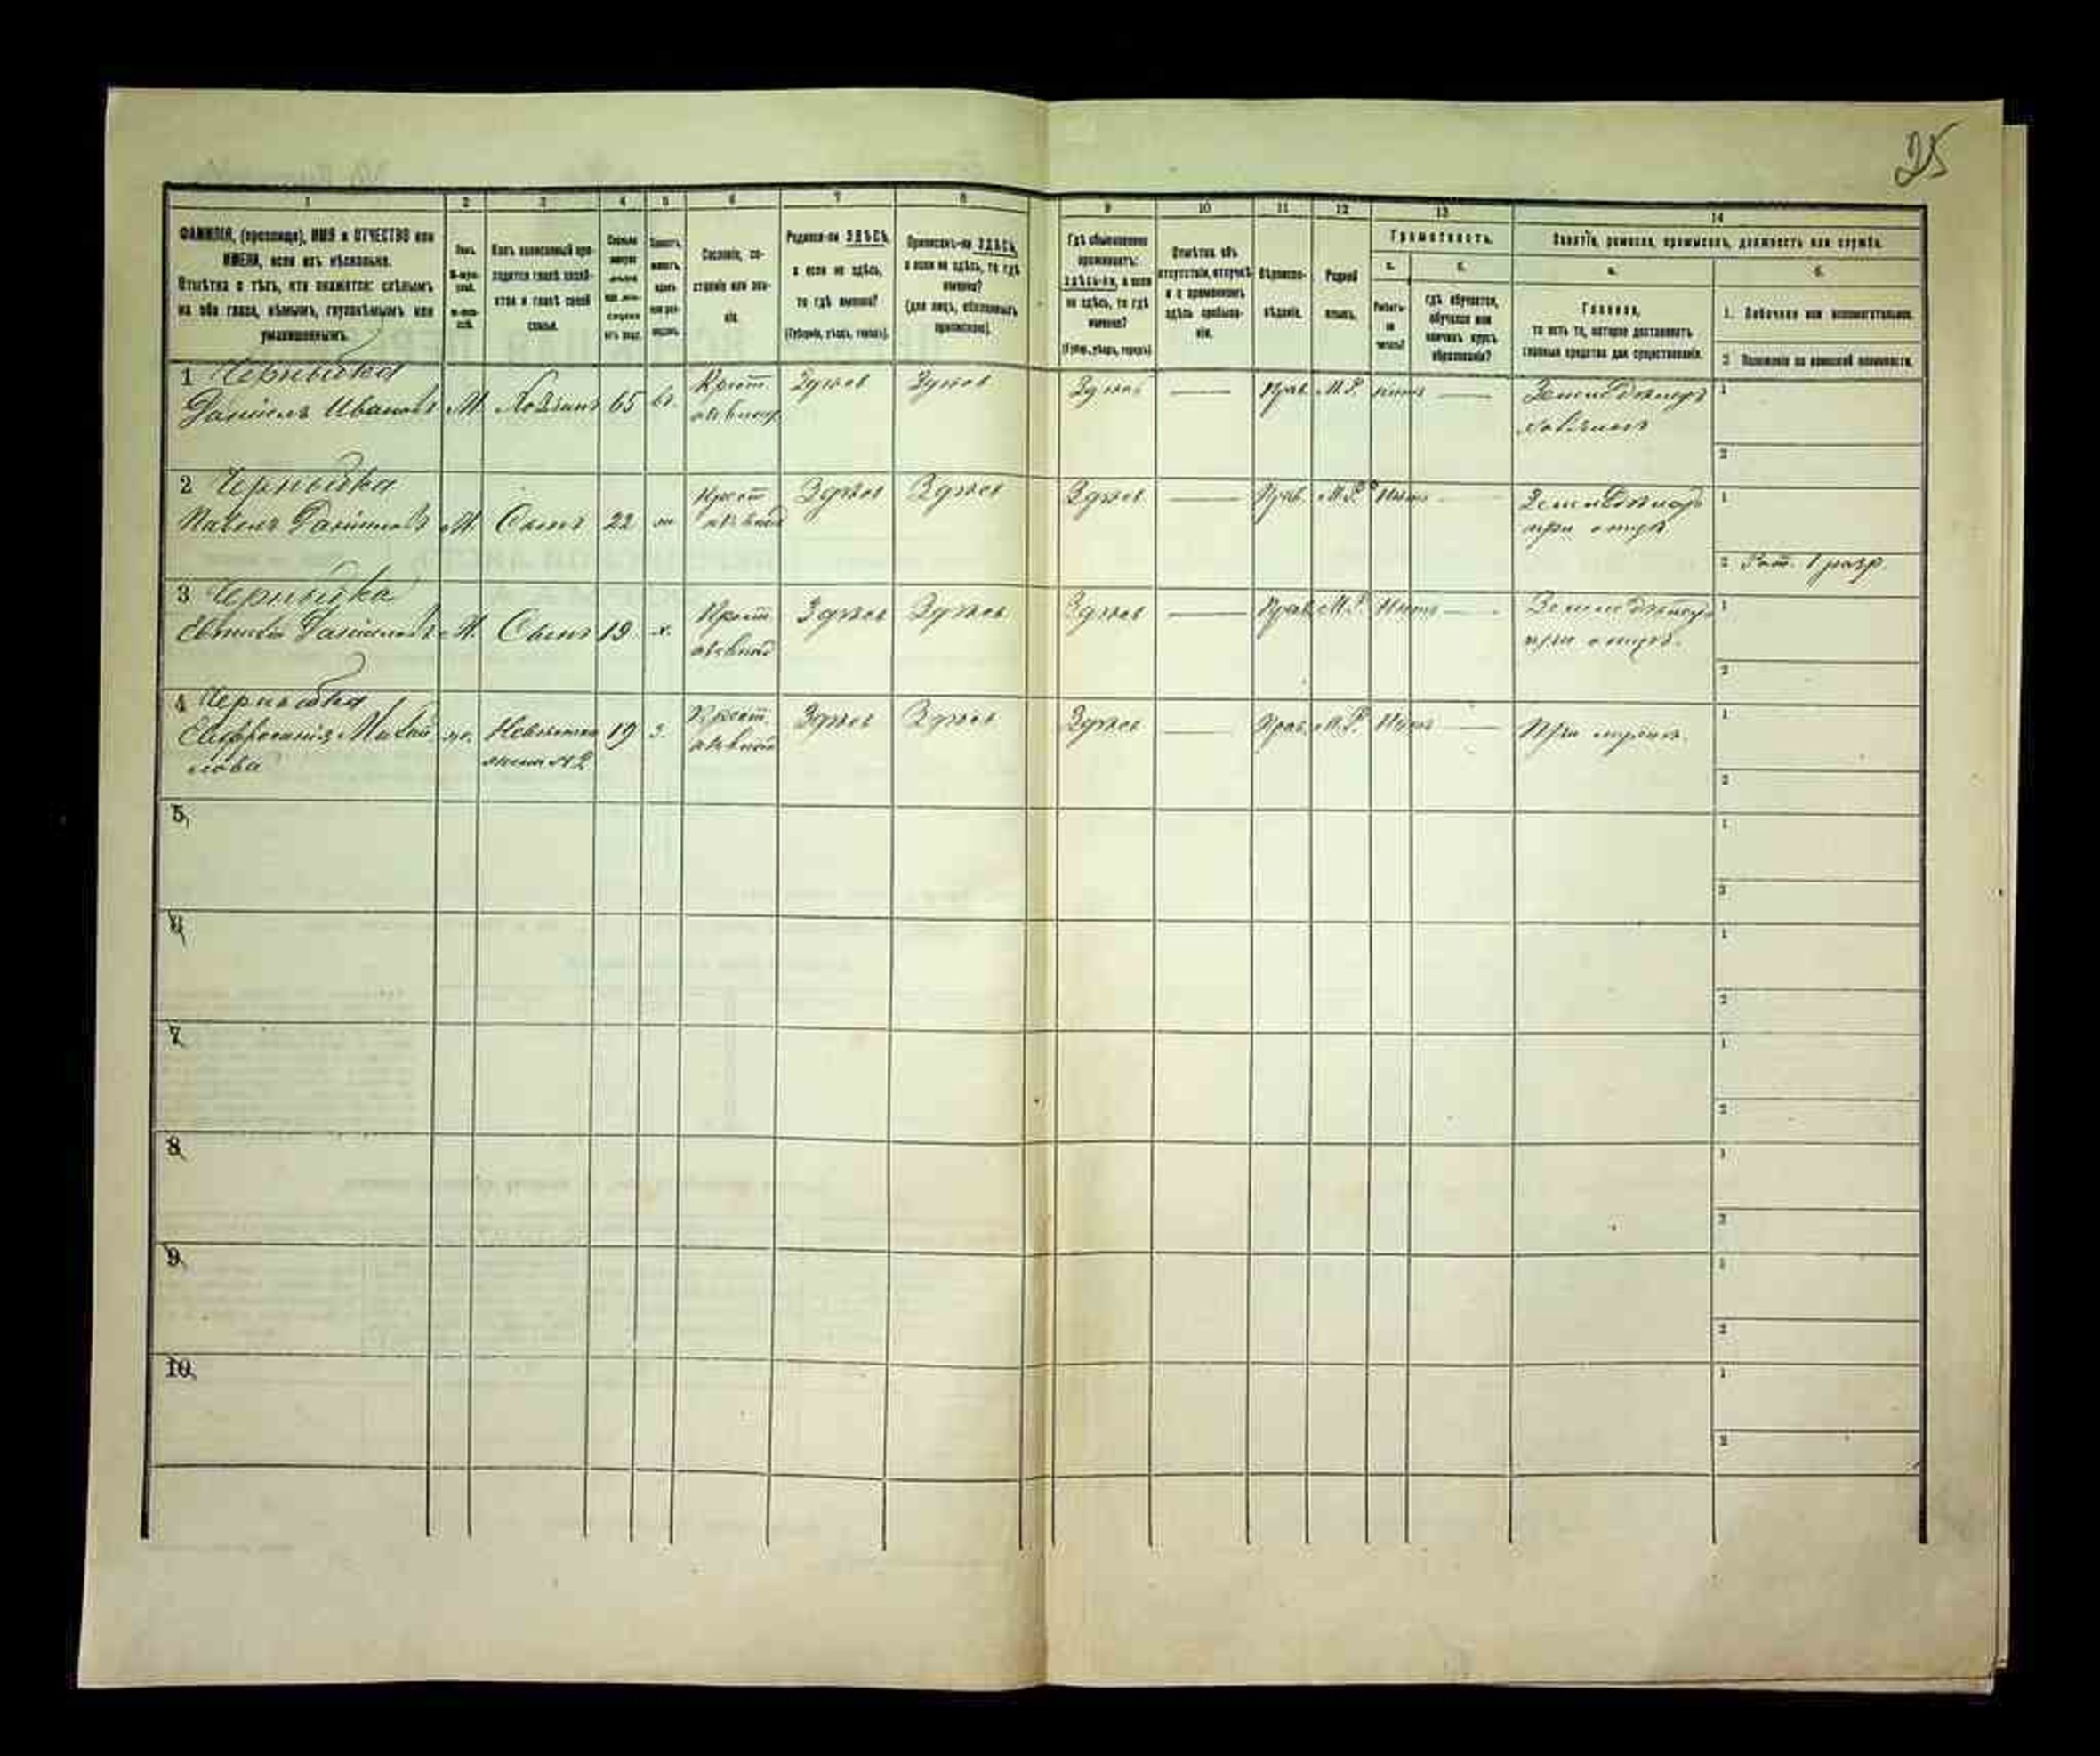 25
1 2 3 4 5 6 7 8 9 10 11 12 13 14
ФАМИЛІЯ, (прозвище), ИМЯ и ОТЧЕСТВО или
ИМЕНА, если ихъ нѣсколько.
Отмѣтка о тѣхъ, кто окажется: слѣпымъ
на оба глаза, нѣмымъ, глухонѣмымъ или
умалишеннымъ.
Полъ.
М-муж-
Какъ записанный при-
ходится главѣ хозяй-
ства и главѣ своей
семьи.
Сословіе, со-
стояніе или зва-
ніе.
Родился-ли ЗДѢСЬ,
а если не здѣсь,
то гдѣ именно?
(Губернія, уѣздъ, городъ).
Приписанъ-ли ЗДѢСЬ,
а если не здѣсь, то гдѣ
именно?
(для лицъ, обязанныхъ
припискою).
Гдѣ обыкновенно
проживаетъ:
здѣсь-ли, а если
не здѣсь, то гдѣ
именно?
(Губер., уѣздъ, городъ)
Отмѣтка объ
отсутствіи, отлучкѣ
и о временномъ
здѣсь пребыва-
ніи.
Вѣроиспо-
вѣданіе.
Родной
языкъ.
Грамотность.
а. б.
Умѣетъ-
ли
читать?
гдѣ обучается,
обучался или
кончилъ курсъ
образованія?
Занятіе, ремесло, промыселъ, должность или служба.
а. б.
Главное,
то есть то, которое доставляетъ
главныя средства для существованія.
1. Побочное или вспомогательное.
2. Положеніе по воинской повинности.
1 Чернышка
Даніилъ Ивановъ М. Хозяинъ 65 вд. Крест. Здѣсь Здѣсь Здѣсь — Прав. М.Р. нѣтъ — Земледѣлецъ 1
хозяинъ
2
2 Чернышка
Павелъ Данииловъ М. Сынъ 22 Крест. Здѣсь Здѣсь Здѣсь — Прав. М.Р. Нѣтъ — Земледѣлецъ 1
при отцѣ
2 Рат. 1 разр.
3 Чернышка
Евтихій Данииловъ М. Сынъ 19 х. Крест. Здѣсь Здѣсь Здѣсь — Прав. М.Р. Нѣтъ — Земледѣлецъ 1
при отцѣ.
2
4 Чернышка
Евфросинія Михай ж. Невѣстка 19 з. Крест. Здѣсь Здѣсь Здѣсь — Прав. М.Р. Нѣтъ — При мужѣ. 1
лова жена №2
2
5 1
2
6 1
2
7 1
2
8 1
2
9 1
2
10 1
2